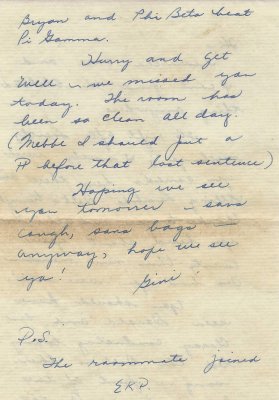 Bryan and Phi Beta beat
Pi Gamma.
Hurry and get
Well - we missed you
today. The room has
been so clean all day.
(Mebbe I should put a
P before that last sentence)
Hoping we see
you tomorrow - sans
cough, sans bags -
anyway, hope we see
ya!
Gini
P.S.
The roommate joined
EKP.